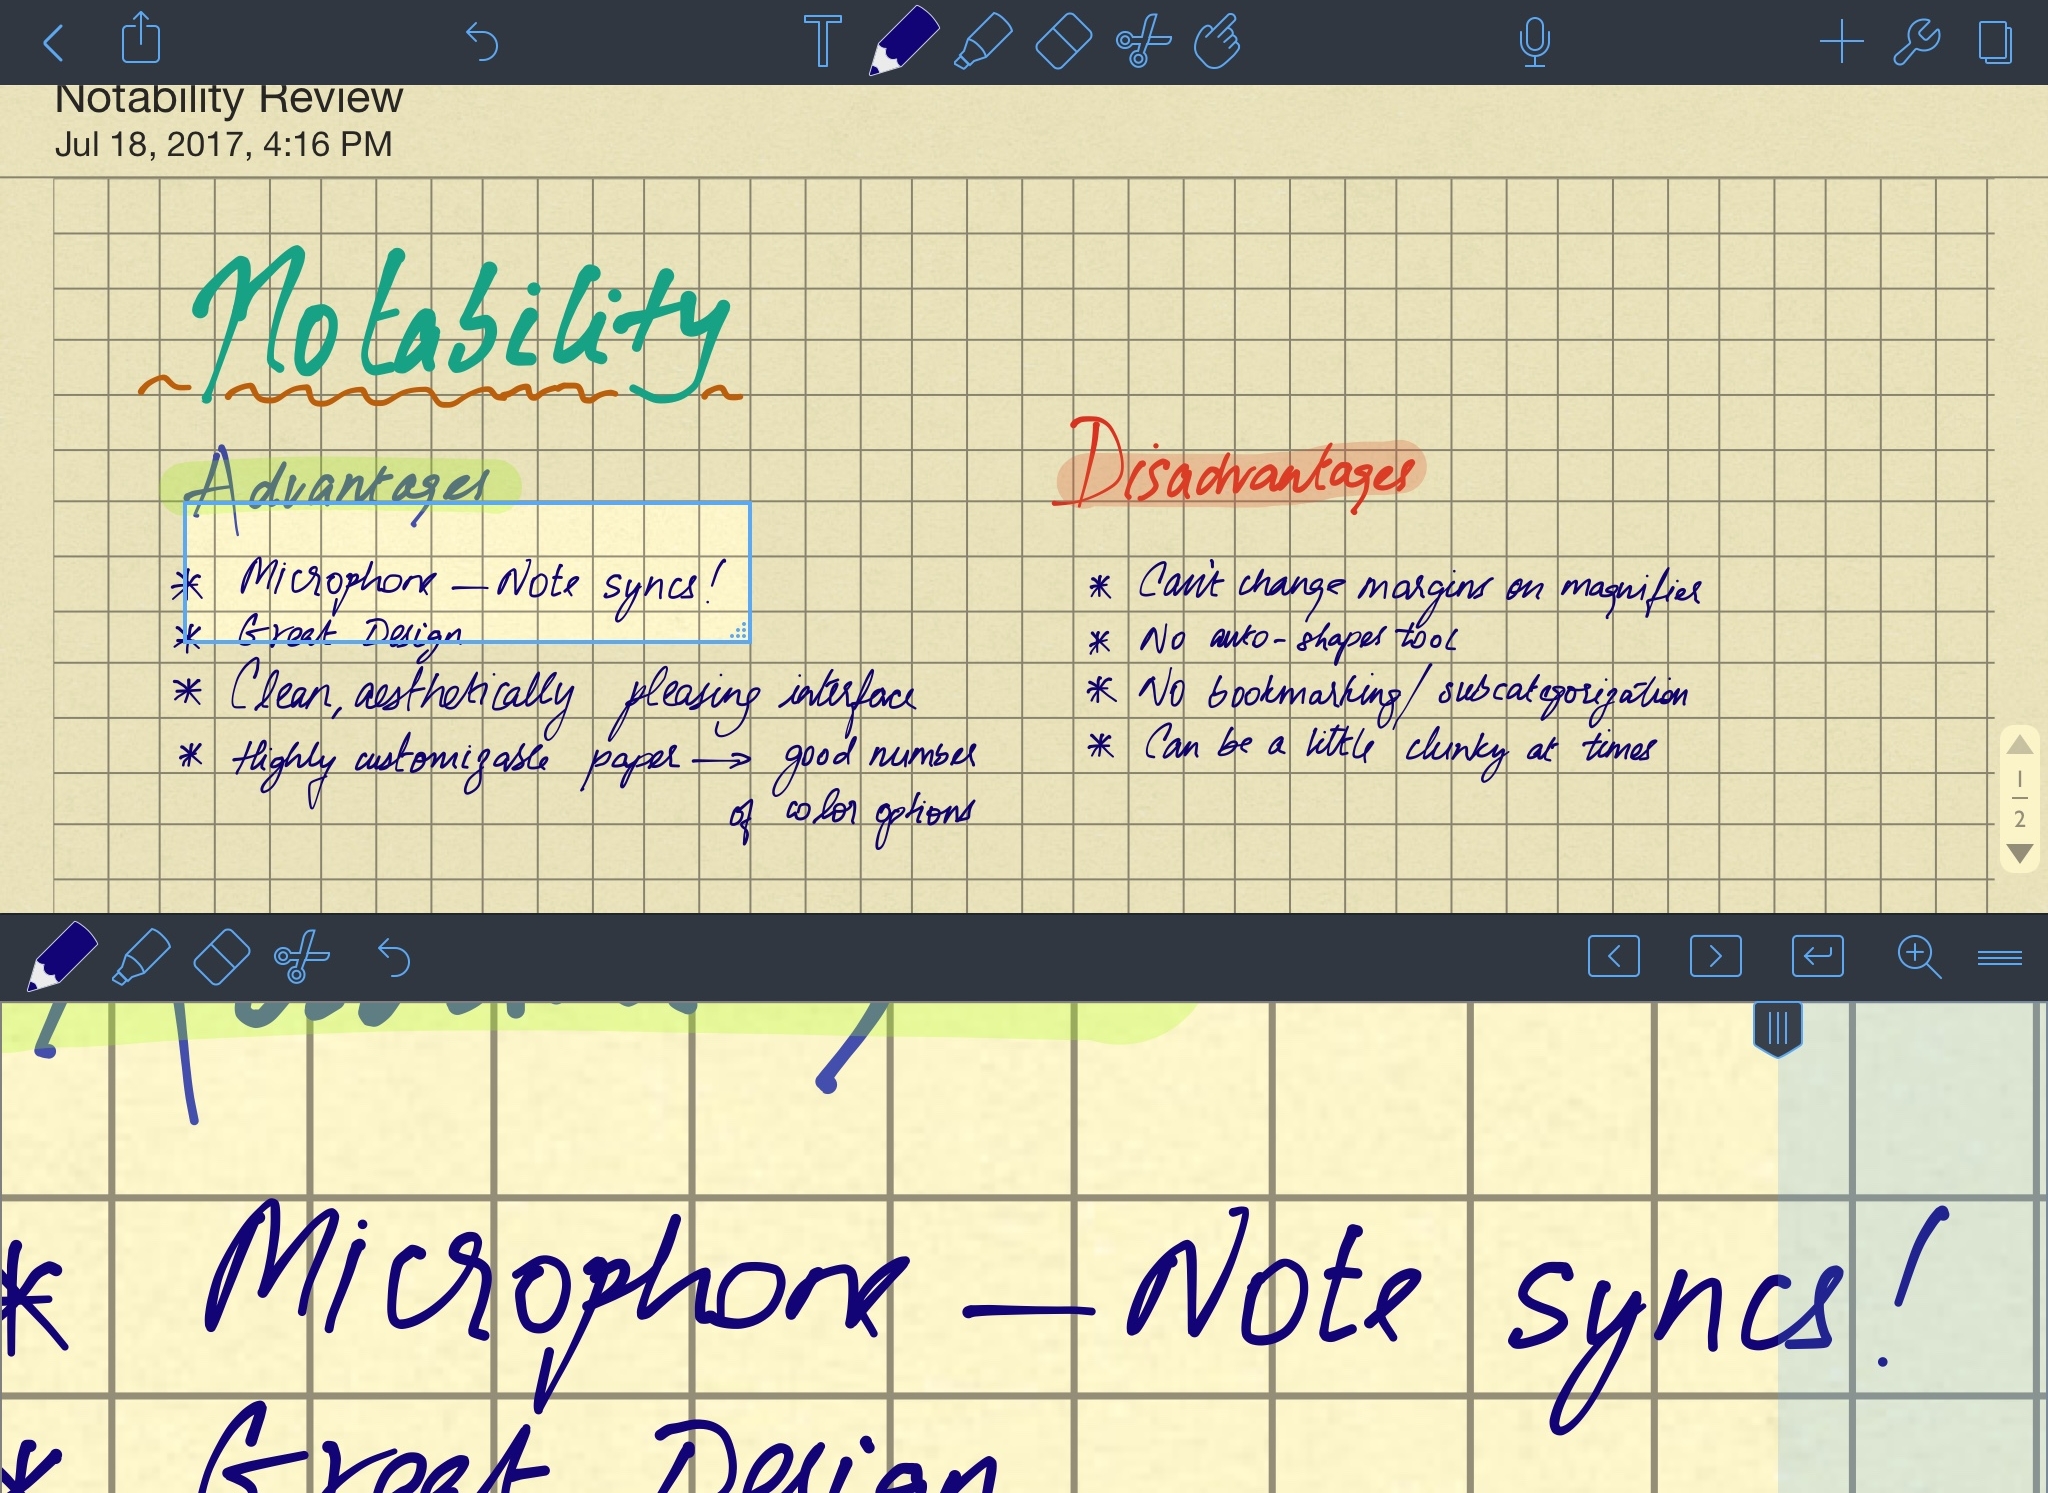 T
Notability Review
Jul 18, 2017, 4:16 PM
Notability
Advantages
* Microphone — Note syncs!
* Great Design
* Clean, aesthetically pleasing interface
* Highly customizable paper → good number
of color options
Disadvantages
* Can't change margins on magnifier
* No auto-shapes tool
* No bookmarking/subcategorization
* Can be a little clunky at times
1
2
* Microphone — Note syncs!
* Great Design